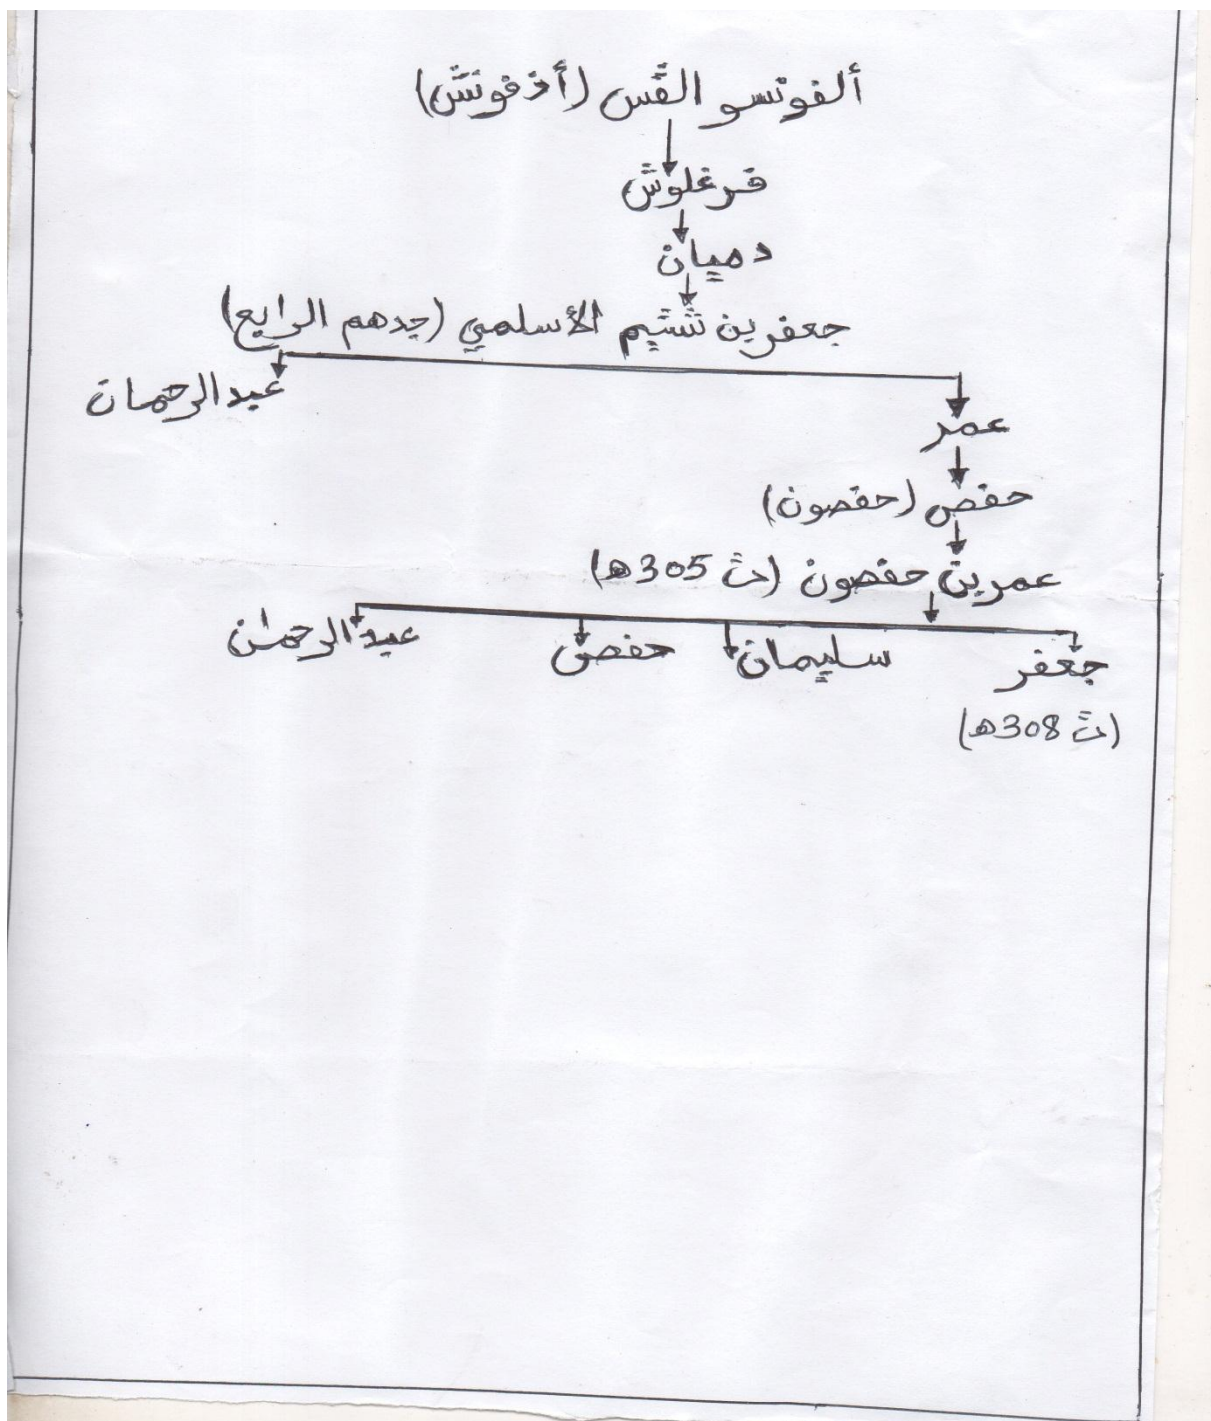 ألفونسو القس (أذفونش)
فرغلوش
دميان
جعفر بن شتيم الأسلمي (جدهم الرابع)
عمر عبد الرحمان
حفص (حفصون)
عمر بن حفصون (ت 305هـ)
جعفر سليمان حفص عبد الرحمان
(ت 308هـ)